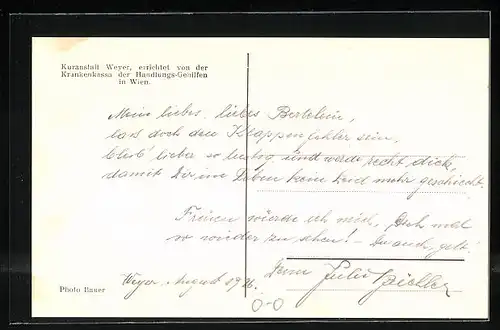 Kuranstalt Weyer, errichtet von der
Krankenkassa der Handlungs-Gehilfen
in Wien.
Mein liebes, liebes Bertelein,
lass doch den Klappenfehler sein,
bleib' lieber so lustig und werde recht dick,
damit Dir im Leben kein Leid mehr geschieht.
Freuen würde ich mich, Dich mal
so wieder zu sehen! - Du auch, gelt!
Weyer, August 1926.
Dein Julius
Photo Bauer